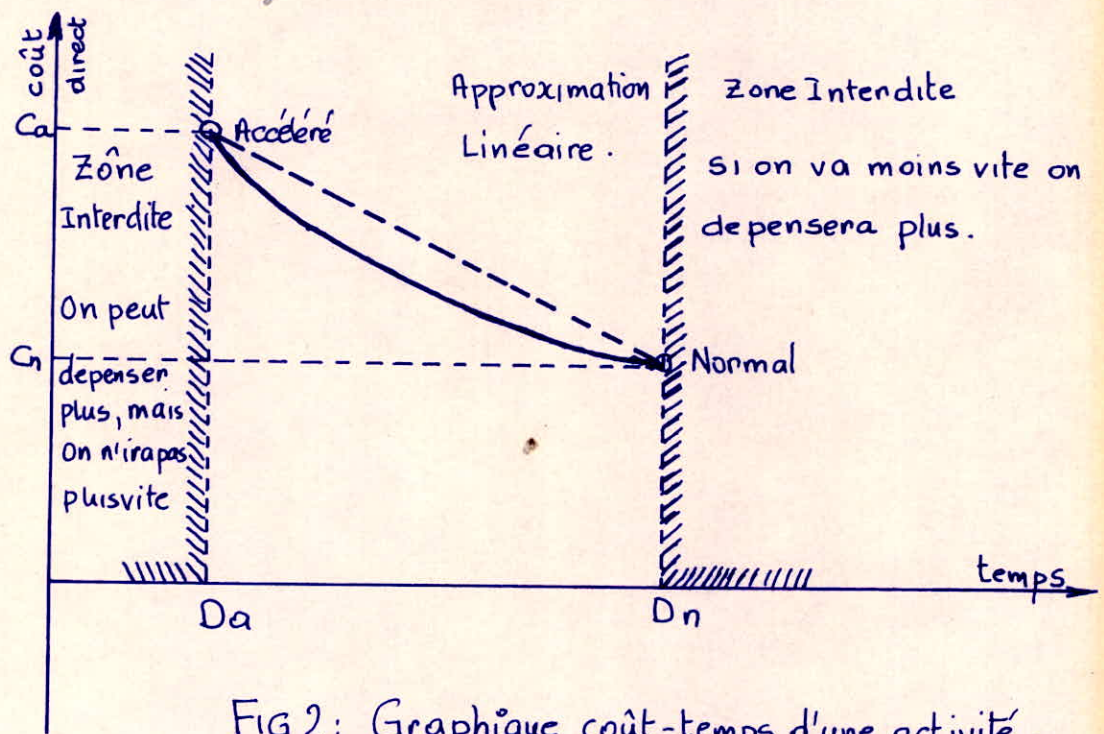 coût
direct
Ca
Accéléré
Zône
Interdite
On peut
Cn
depenser
plus, mais
On n'ira pas
plus vite
Approximation
Linéaire.
Zone Interdite
si on va moins vite on
depensera plus.
Normal
temps
Da
Dn
FIG 2: Graphique coût-temps d'une activité